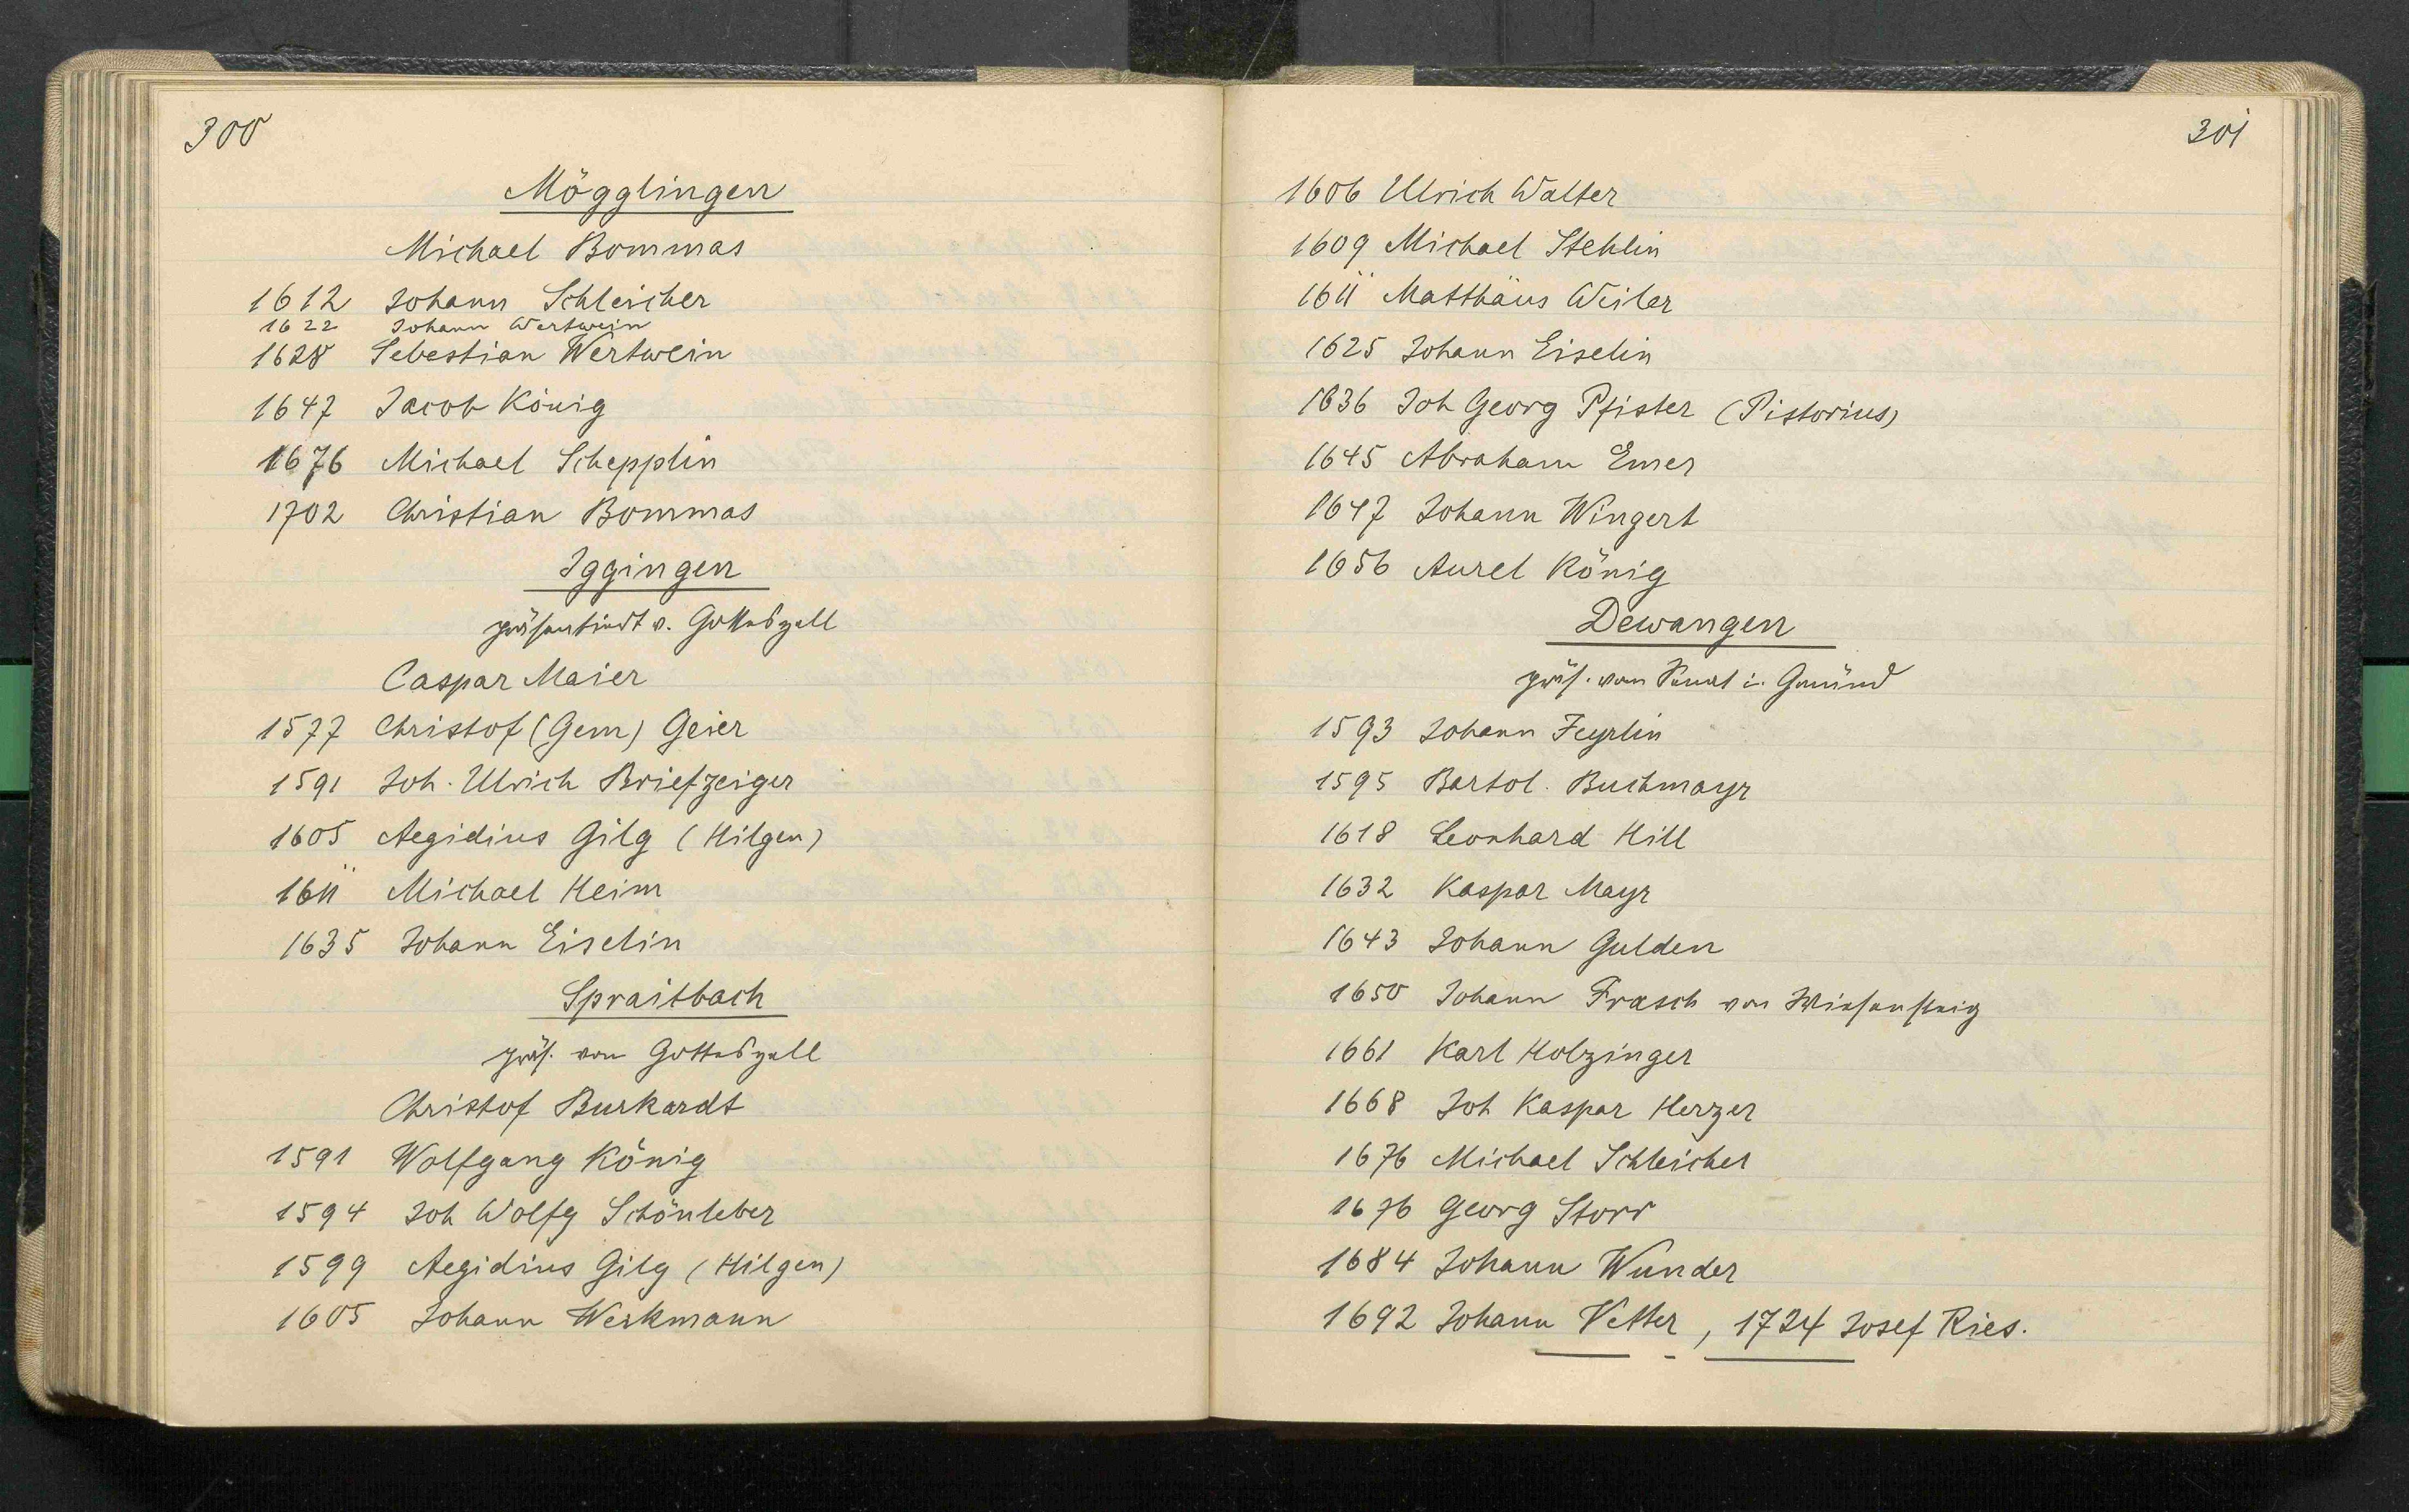 300
Mögglingen
Michael Bommas
1612 Johann Schleicher
1622 Johann Wertwein
1628 Sebestian Wertwein
1647 Jacob König
1676 Michael Schepplin
1702 Christian Bommas
Iggingen
präsentirt v. Gotteszell
Caspar Maier
1577 Christof (Gem) Geier
1591 Joh. Ulrich Briefzeiger
1605 Aegidius Gilg (Hilgen)
1611 Michael Heim
1635 Johann Eiselin
Spraitbach
präs. von Gotteszell
Christof Burkardt
1591 Wolfgang König
1594 Joh Wolfg Schönleber
1599 Aegidius Gilg (Hilgen)
1605 Johann Werkmann
301
1606 Ulrich Walter
1609 Michael Stehlin
1611 Matthäus Weiler
1625 Johann Eiselin
1636 Joh Georg Pfister (Pistorius)
1645 Abraham Emer
1647 Johann Wingert
1656 Aurel König
Dewangen
präs. vom Senat i. Gmünd
1593 Johann Feyrlin
1595 Bartol. Buchmayr
1618 Leonhard Hill
1632 Kaspar Mayr
1643 Johann Gulden
1650 Johann Frasch von Wiesensteig
1661 Karl Holzinger
1668 Joh Kaspar Herzer
1676 Michael Schleicher
1676 Georg Storr
1684 Johann Wunder
1692 Johann Vetter, 1724 Josef Ries.